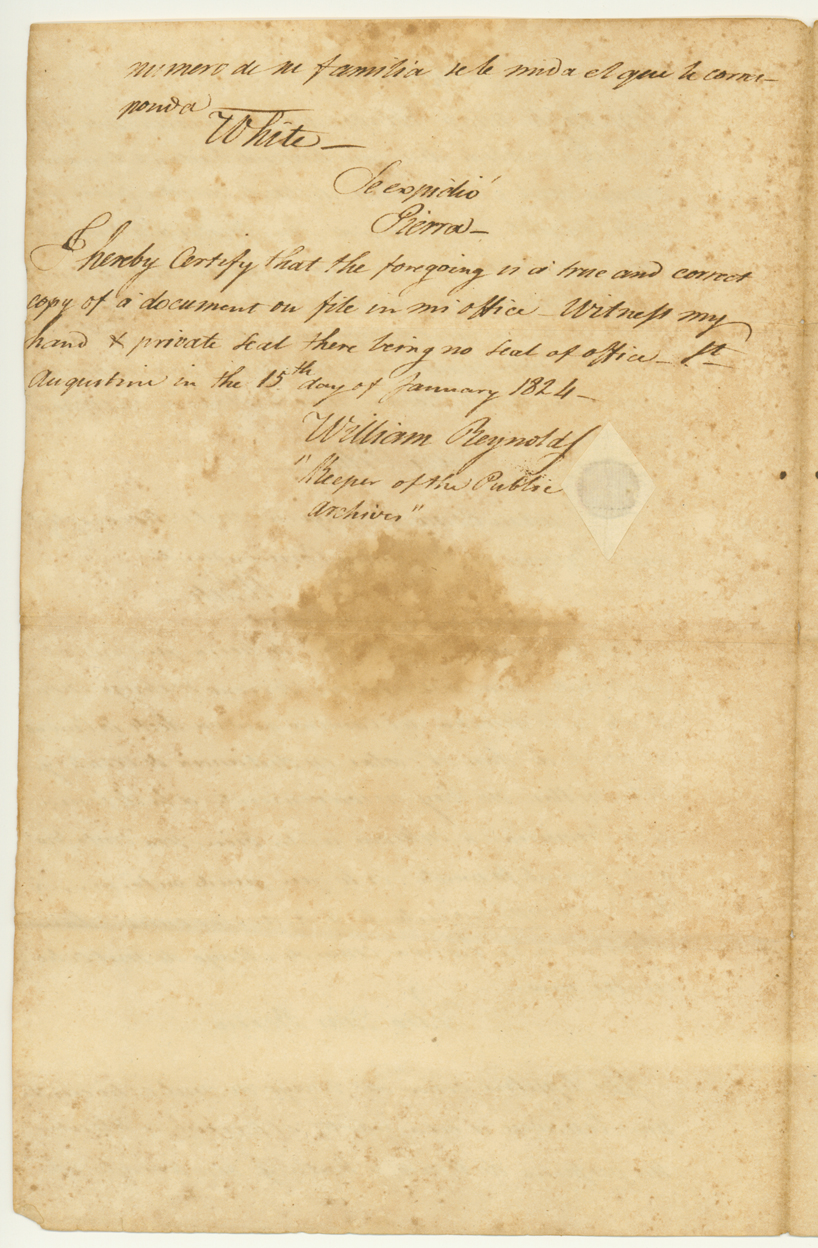 numero de su familia se le mida el que le corres-
ponda
White_
Se expidió
Pierra_
I hereby Certify that the foregoing is a true and correct
copy of a document on file in mi office _ Witness my
hand & private seal there being no seal of office _ St
Augustine in the 15th day of January 1824_
William Reynolds
"Keeper of the Public
Archives"